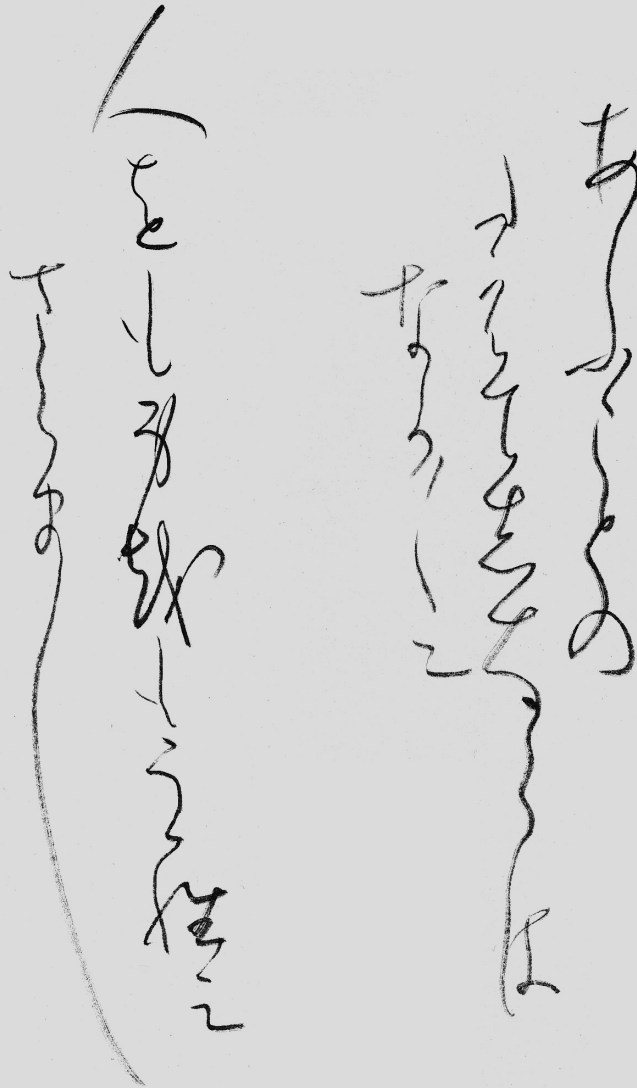 あふことの
たえて志なくは
なか〱に
人をも身越もうらみ
さらまし